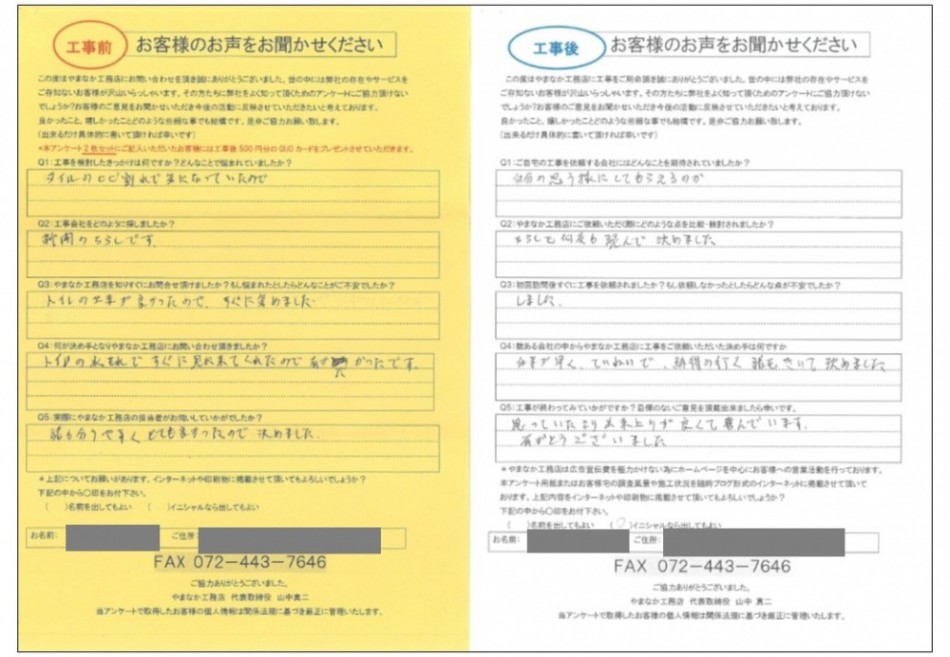 工事前
お客様のお声をお聞かせください
この度はやまなか工務店にお問い合わせを頂き誠にありがとうございました。世の中には弊社の存在やサービスを
ご存知ないお客様が沢山いらっしゃいます。その方たちに弊社をよく知って頂くためのアンケートにご協力頂けない
でしょうか？お客様のご意見をお聞かせいただき今後の活動に反映させていただきたいと考えております。
良かったこと、嬉しかったことどのような些細な事でも結構です。是非ご協力お願い致します。
(出来るだけ具体的に書いて頂ければ幸いです)
*本アンケート2枚セットにご記入いただいたお客様には工事後500円分のQUOカードをプレゼントさせていただきます。
Q1:工事を検討したきっかけは何ですか？どんなことで悩まれていましたか？
タイルのヒビ割れで気になっていたので
Q2:工事会社をどのように探しましたか？
新聞のちらしです。
Q3:やまなか工務店を知りすぐにお問合せ頂けましたか？もし悩まれたとしたらどんなことがご不安でしたか？
トイレの工事が良かったので、すぐに決めました。
Q4:何が決め手となりやまなか工務店にお問い合わせ頂きましたか？
トイレの水もれですぐに見に来てくれたので かったです。
Q5:実際にやまなか工務店の担当者がお伺いしていかがでしたか？
話も分りやすくとても良かったので決めました。
*上記についてお願いがあります。インターネットや印刷物に掲載させて頂いてもよろしいでしょうか？
下記の中から〇印をお付下さい。
(　　)名前を出してもよい　(　　)イニシャルなら出してもよい
お名前:　ご住所:
FAX 072－443－7646
ご協力ありがとうございました。
やまなか工務店 代表取締役 山中 真二
当アンケートで取得したお客様の個人情報は関係法規に基づき厳正に管理いたします。
工事後
お客様のお声をお聞かせください
この度はやまなか工務店に工事をご用命頂き誠にありがとうございました。世の中には弊社の存在やサービスを
ご存知ないお客様が沢山いらっしゃいます。その方たちに弊社をよく知って頂くためのアンケートにご協力頂けない
でしょうか？お客様のご意見をお聞かせいただき今後の活動に反映させていただきたいと考えております。
良かったこと、嬉しかったことどのような些細な事でも結構です。是非ご協力お願い致します。
(出来るだけ具体的に書いて頂ければ幸いです)
Q1:ご自宅の工事を依頼する会社にはどんなことを期待されていましたか？
自分の思う様にしてもらえるのか
Q2:やまなか工務店にご依頼いただく際にどのような点を比較・検討されましたか？
ちらしを何度も読んで決めました
Q3:初回訪問後すぐに工事を依頼されましたか？もし依頼しなかったとしたらどんな点が不安でしたか？
しました。
Q4:数ある会社の中からやまなか工務店に工事をご依頼いただいた決め手は何ですか
仕事が早く、ていねいで、納得の行く話もきいて決めました
Q5:工事が終わってみていかがですか？自慢のないご意見を頂戴出来ましたら幸いです。
思っていたより出来上りが良くて喜んでいます。
有がとうございました
*やまなか工務店は広告宣伝費を極力かけない為にホームページを中心にお客様への営業活動を行っております。
本アンケート用紙またはお客様宅の調査風景や施工状況を随時ブログ形式のインターネットに掲載させて頂いて
おります。上記内容をインターネットや印刷物に掲載させて頂いてもよろしいでしょうか？
下記の中から〇印をお付下さい
(　　)名前を出してもよい　(〇)イニシャルなら出してもよい
お名前:　ご住所:
FAX 072－443－7646
ご協力ありがとうございました。
やまなか工務店 代表取締役 山中 真二
当アンケートで取得したお客様の個人情報は関係法規に基づき厳正に管理いたします。